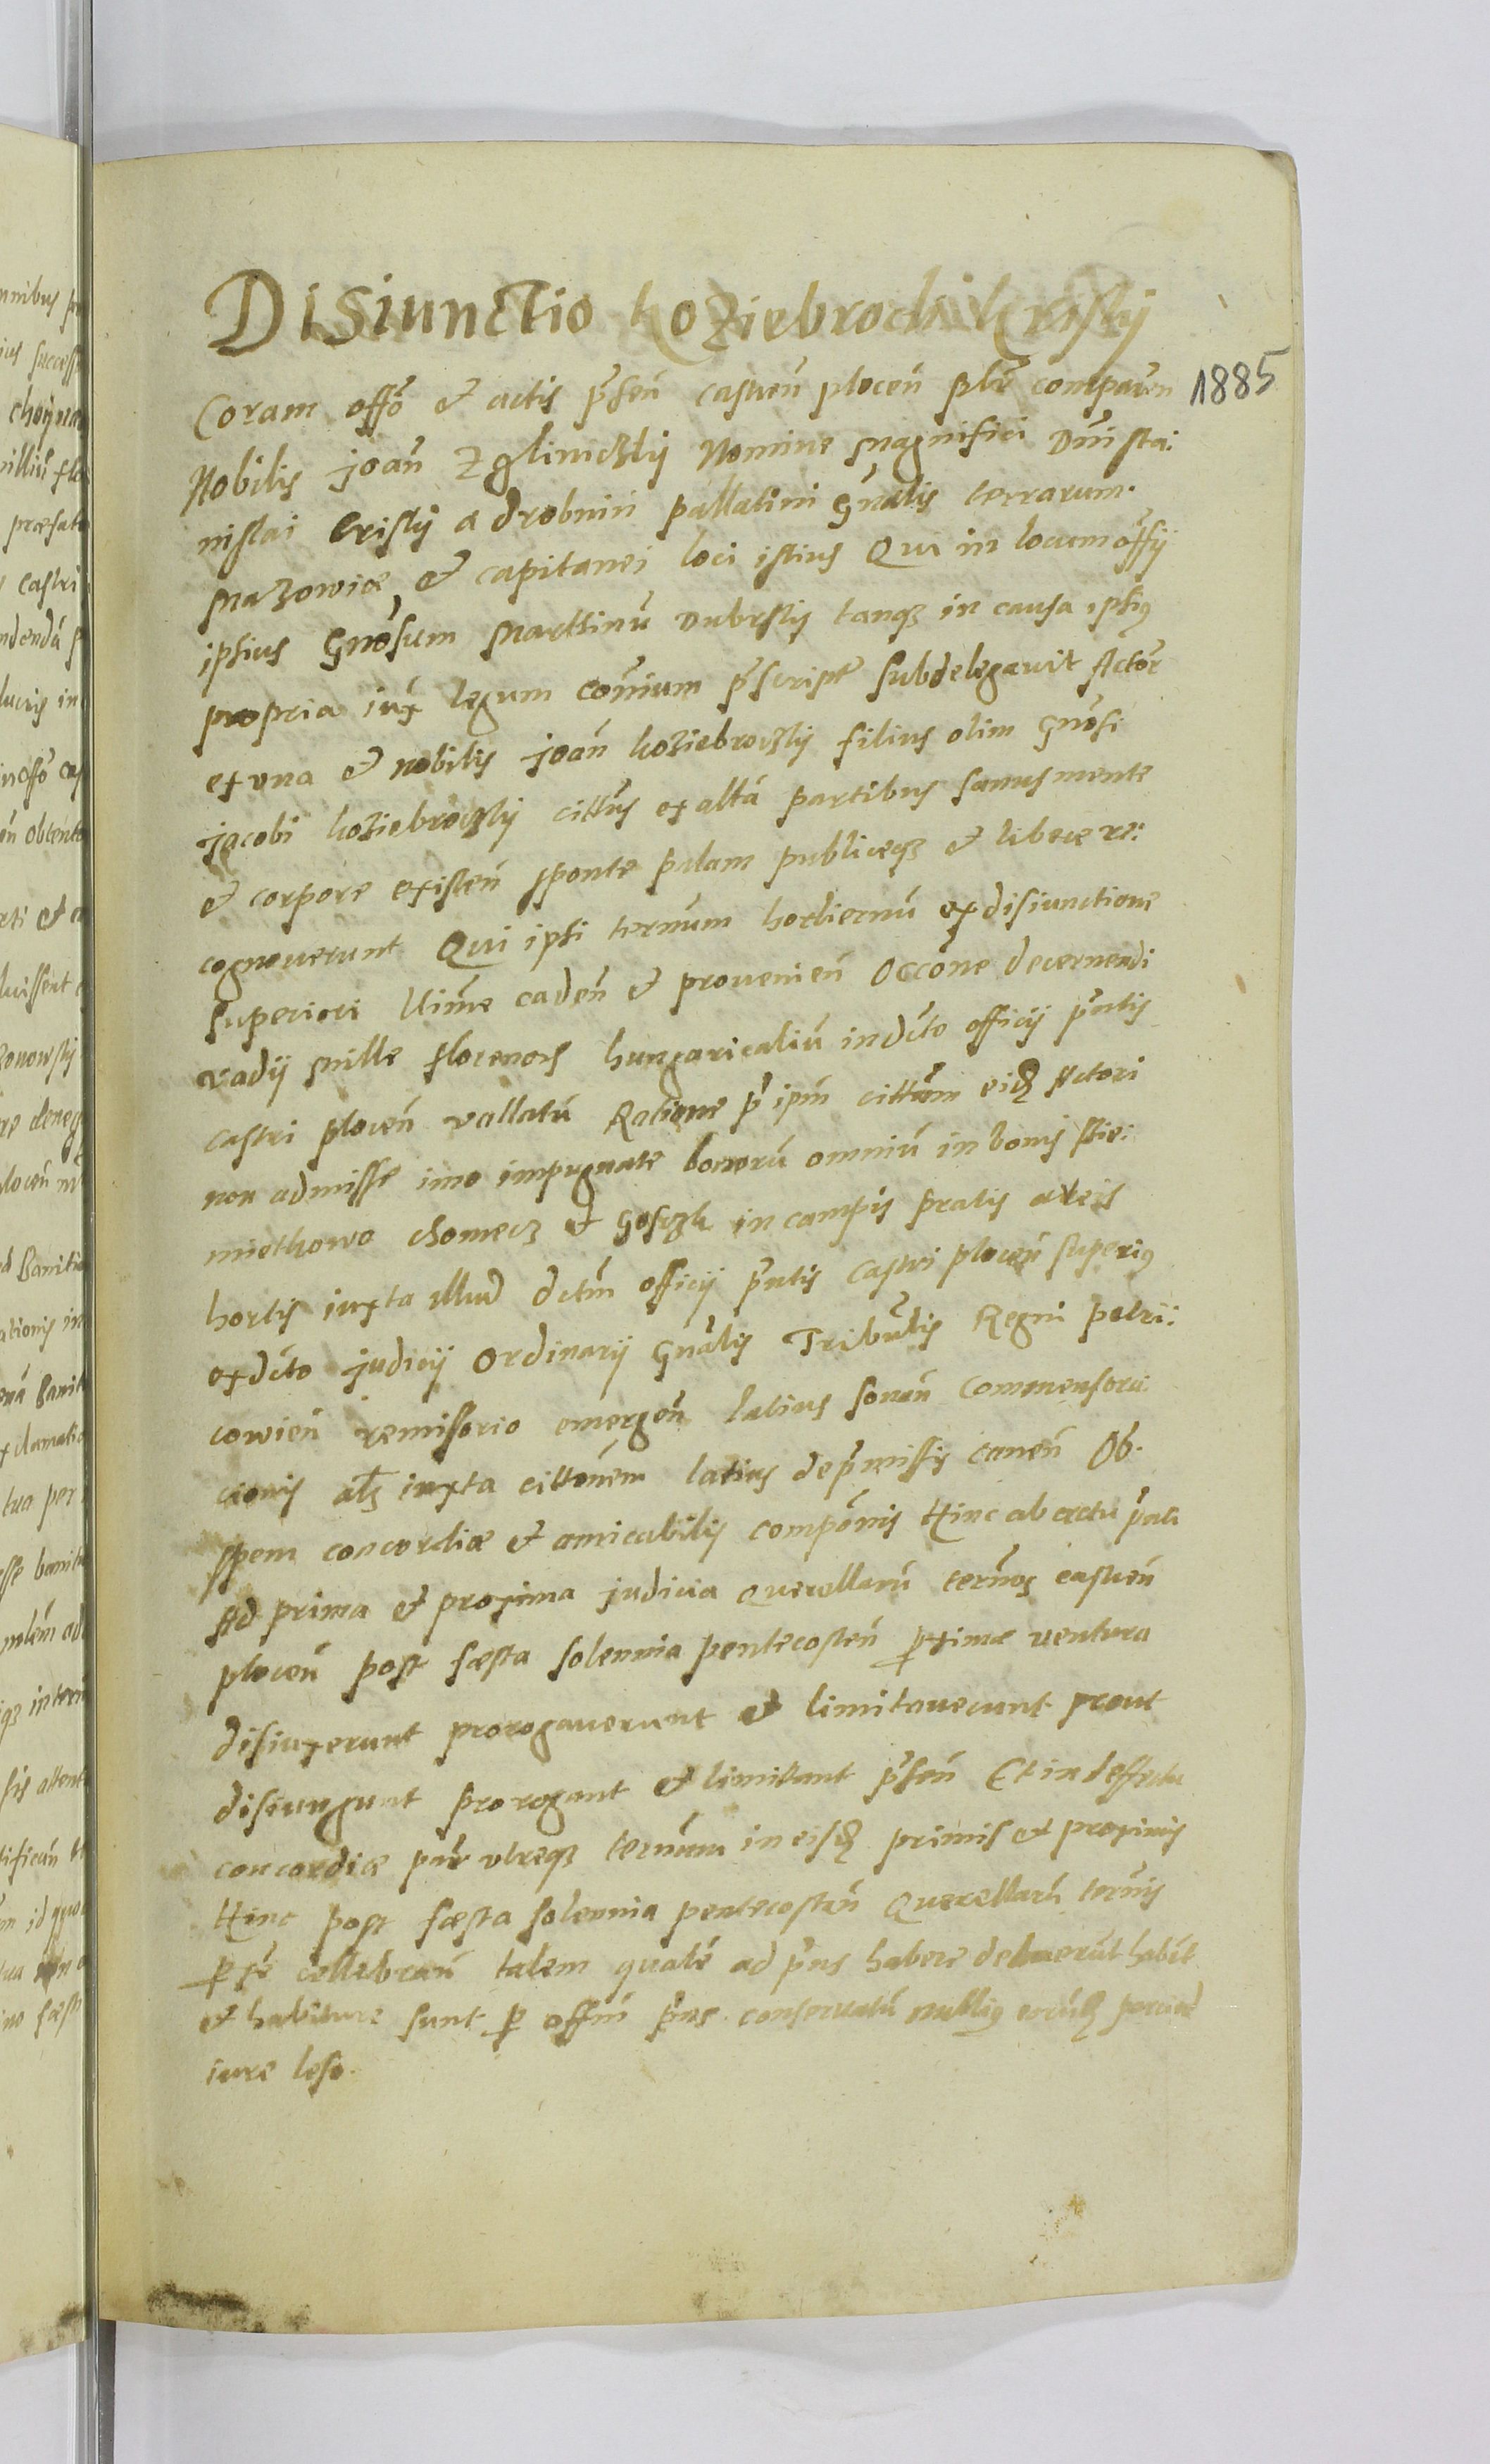 Disiunctio Koziebrodi Krisky
1885
Coram offō et actis p̄sen̄ castren̄ plocen̄ plr̄ comparen
Nobilis Joan̄ Zglinczky Nomine Magnifici Dni Sta:
nislai Crisky a drobnin pallatini Gn̄alis terrarum
Mazowiæ et capitanei loci istius Qui in locum offy
ipsius Gn̄osum Marttinū Dubrsky tanq3 in causa ipsius
propria iux legum com̄ium p̄script subdelegavit Actor̄
ex una et nobilis Joan̄ Koziebroczky filius olim Gn̄osi
Jacobi Koziebroczky citt̄us ex altā partibus sanus mente
et corpore existen̄ sponte palam publiceq3 et libere re:
cognoverunt Qui ipsi termum hodiernū ex disiunctione
superiori ultime caden̄ et provenien̄ Occōne decernendi
vadij Mille florenoꝝ hungaricaliū in dcto officij p̄ntis
castri plocen̄ vallatū Ratione p̄ ipm̄ cittum eid Actori
non admisse imo impugnate bonorū omniū in bonis Stie:
miethowo chomecz et Goseczk in campis pratis areis
hortis iuxta illud dctm̄ officij p̄ntis castri plocen̄ superius
ex dcto judicij Ordinarij Gn̄alis Tribūlis Regni petri:
covien̄ remissorio emergen̄ latius sonan̄ commensora
cionis als iuxta cittonem latius de p̄missis canen̄ Ob
spem concordiæ et amicabilis compōnis Hinc ab actu p̄nti
Ad prima et proxima judicia Querellarū termos castren̄
plocen̄ post fæsta solennia pentecosten̄ pxime ventura
disiuxerunt prorogaverunt et limitaverunt prout
disiungunt prorogant et limitant p̄sen̄ Et in deffectu
concordiæ p̄nr utreq3 termum in eisd primis et proximis
Hinc post fæsta solennia pentecosten̄ Querellarū termis
cellebran̄ talem qualē ad p̄ns habere debuerūt habēt
et habiture sunt p offm̄ p̄ns conservatū nullius eorūd
iure leso.